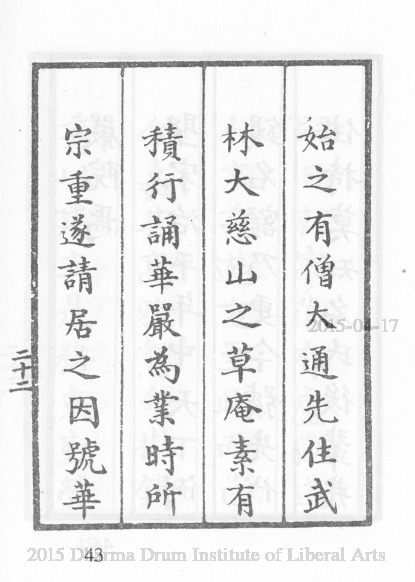 始之有僧大通先住武
林大慈山之草庵素有
積行誦華嚴為業時所
宗重遂請居之因號華
二十二
2015-04-17
43
2015 Dharma Drum Institute of Liberal Arts